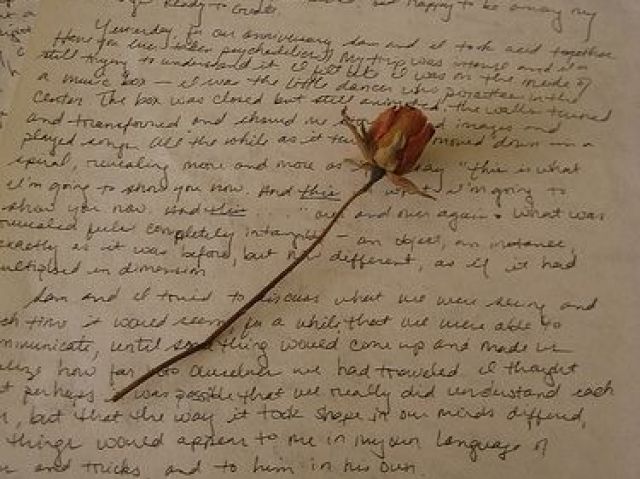 Ready to Create.
happy to be among my
Yesterday, for our anniversary Sam and I took acid together
Have you ever taken psychedelics? My trip was intense and I'm
still trying to understand it. I felt like I was on the inside of
a music box – I was the little dancer who pirouettes in the
center. The box was closed but still animated: the walls turned
and transformed and showed me images and
played songs. All the while as it moved down in a
spiral, revealing more and more as say "this is what
I'm going to show you now. And this I'm going to
show you now. And this " over and over again. What was
revealed felt completely intangible – an object, an instance,
exactly as it was before, but now different, as if it had
multiplied in dimension
Sam and I tried to discuss what we were seeing and
each time it would seem, for a while that we were able to
communicate, until something would come up and made us
realize how far into ourselves we had traveled. I thought
that perhaps it was possible that we really did understand each
, but that the way it took shape in our minds differed,
things would appear to me in my own language of
and tricks and to him in his own.